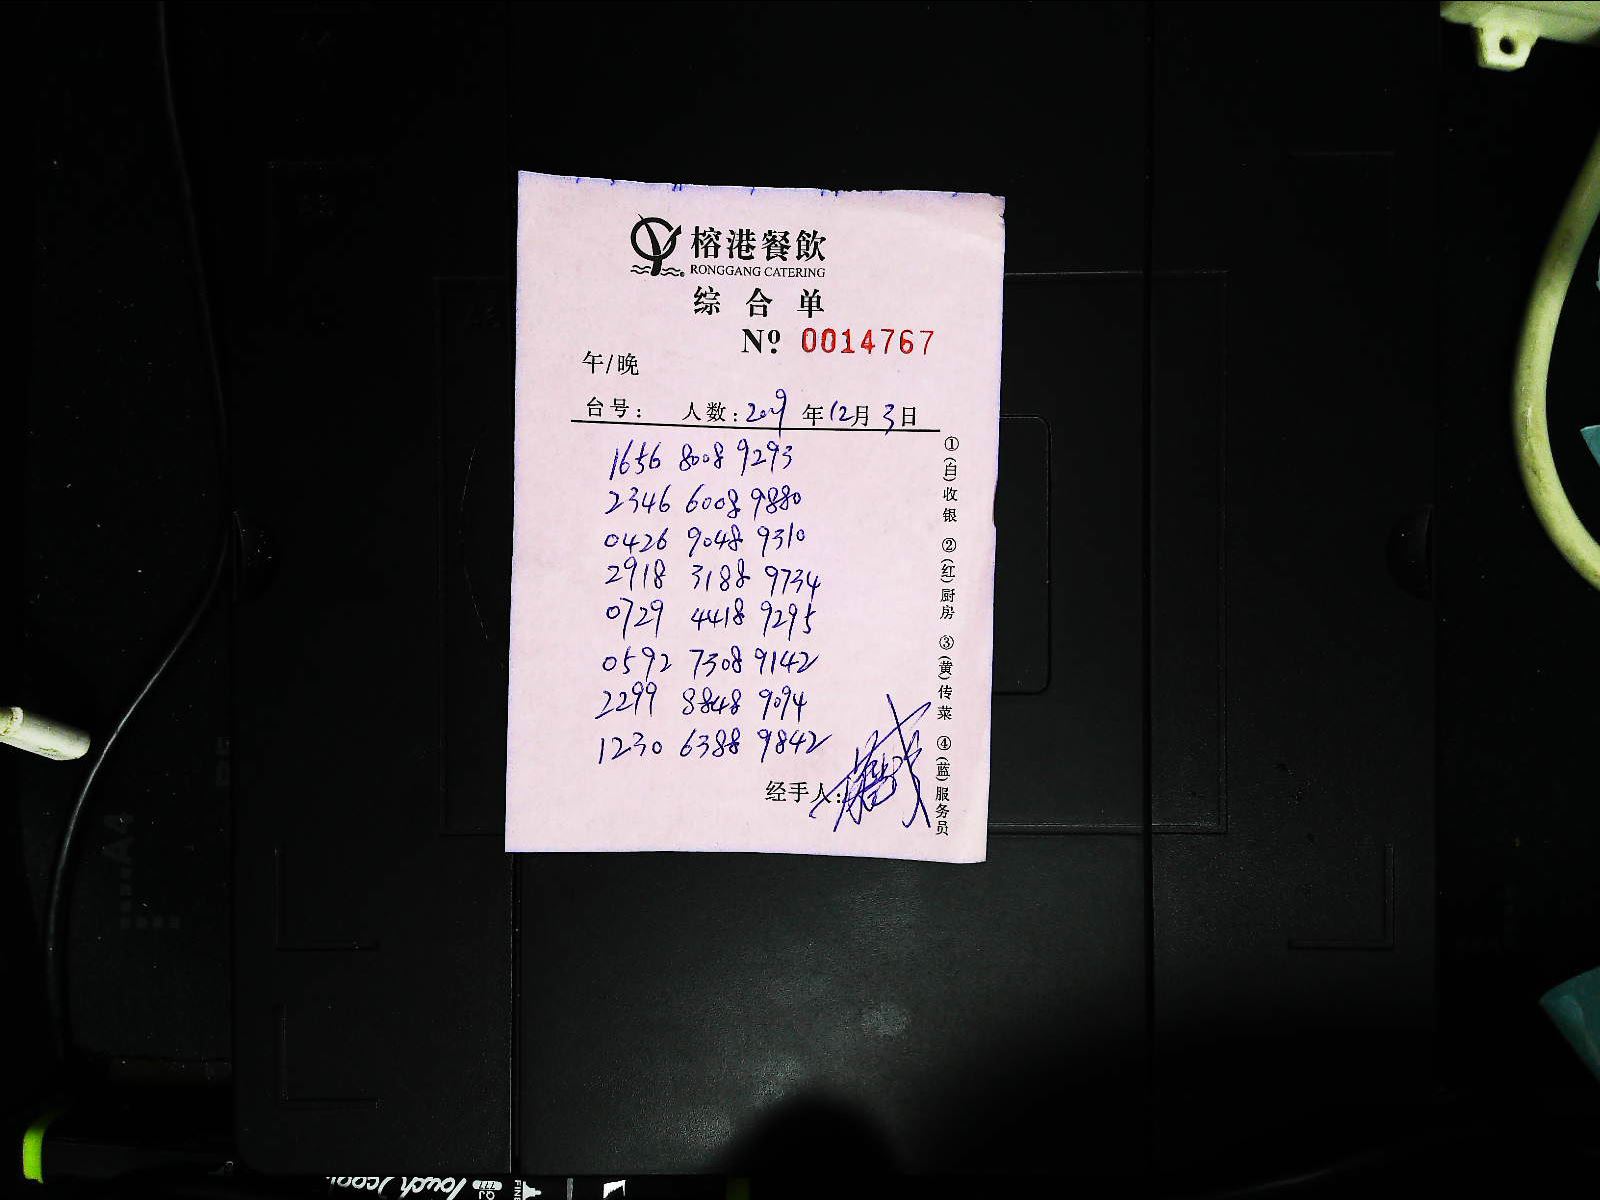 榕港餐飲
RONGGANG CATERING
综合单
Nº 0014767
午/晚
台号: 人数: 2019 年 12 月 3 日
1656 8008 9293
2346 6008 9880
0426 9048 9310
2918 3188 9734
0729 4418 9295
0592 7308 9142
2299 8848 9094
1230 6388 9842
经手人:
①(白)收银 ②(红)厨房 ③(黄)传菜 ④(蓝)服务员
A4